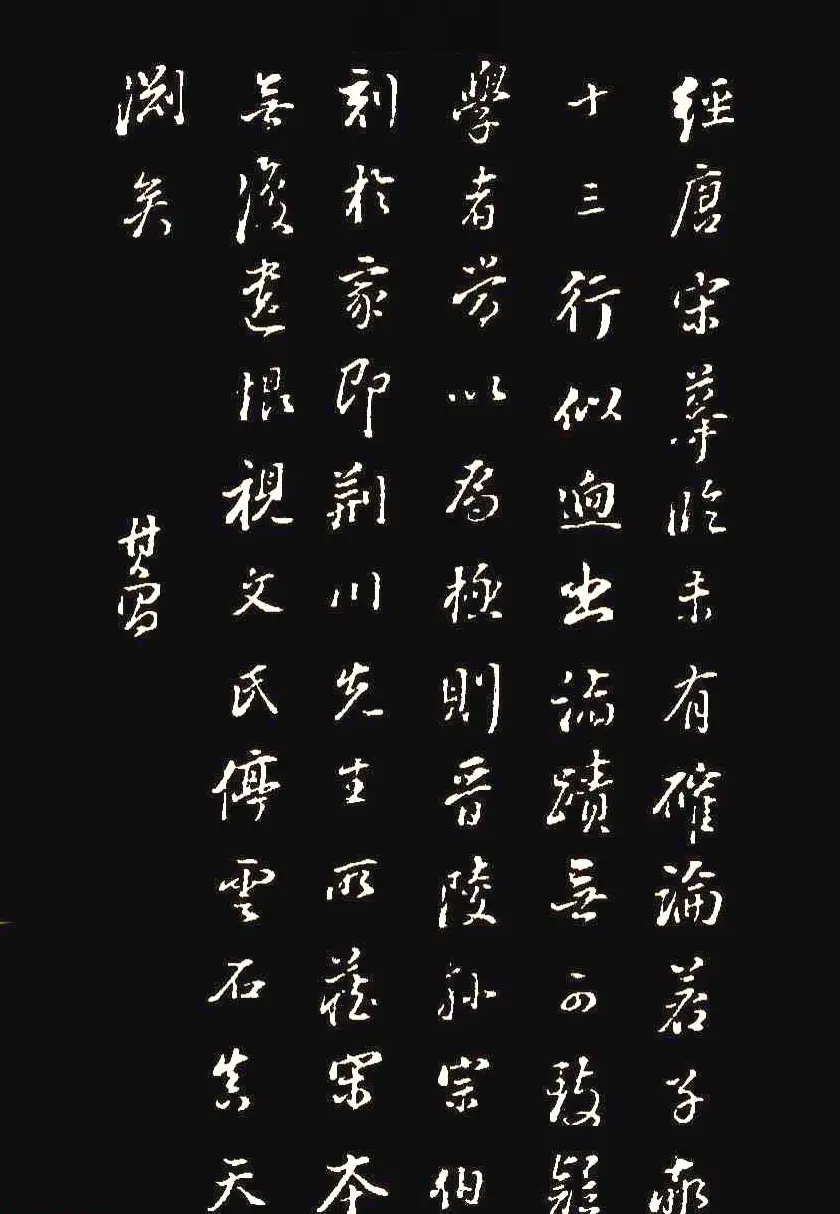 經唐宋摹臨未有確論若子敬
十三行似逈出諸蹟無可致疑
學者當以爲極則晉陵孫宗伯
刻於家即荊川先生所藏宋本
無復遺恨視文氏停雲石真天
淵矣
其昌